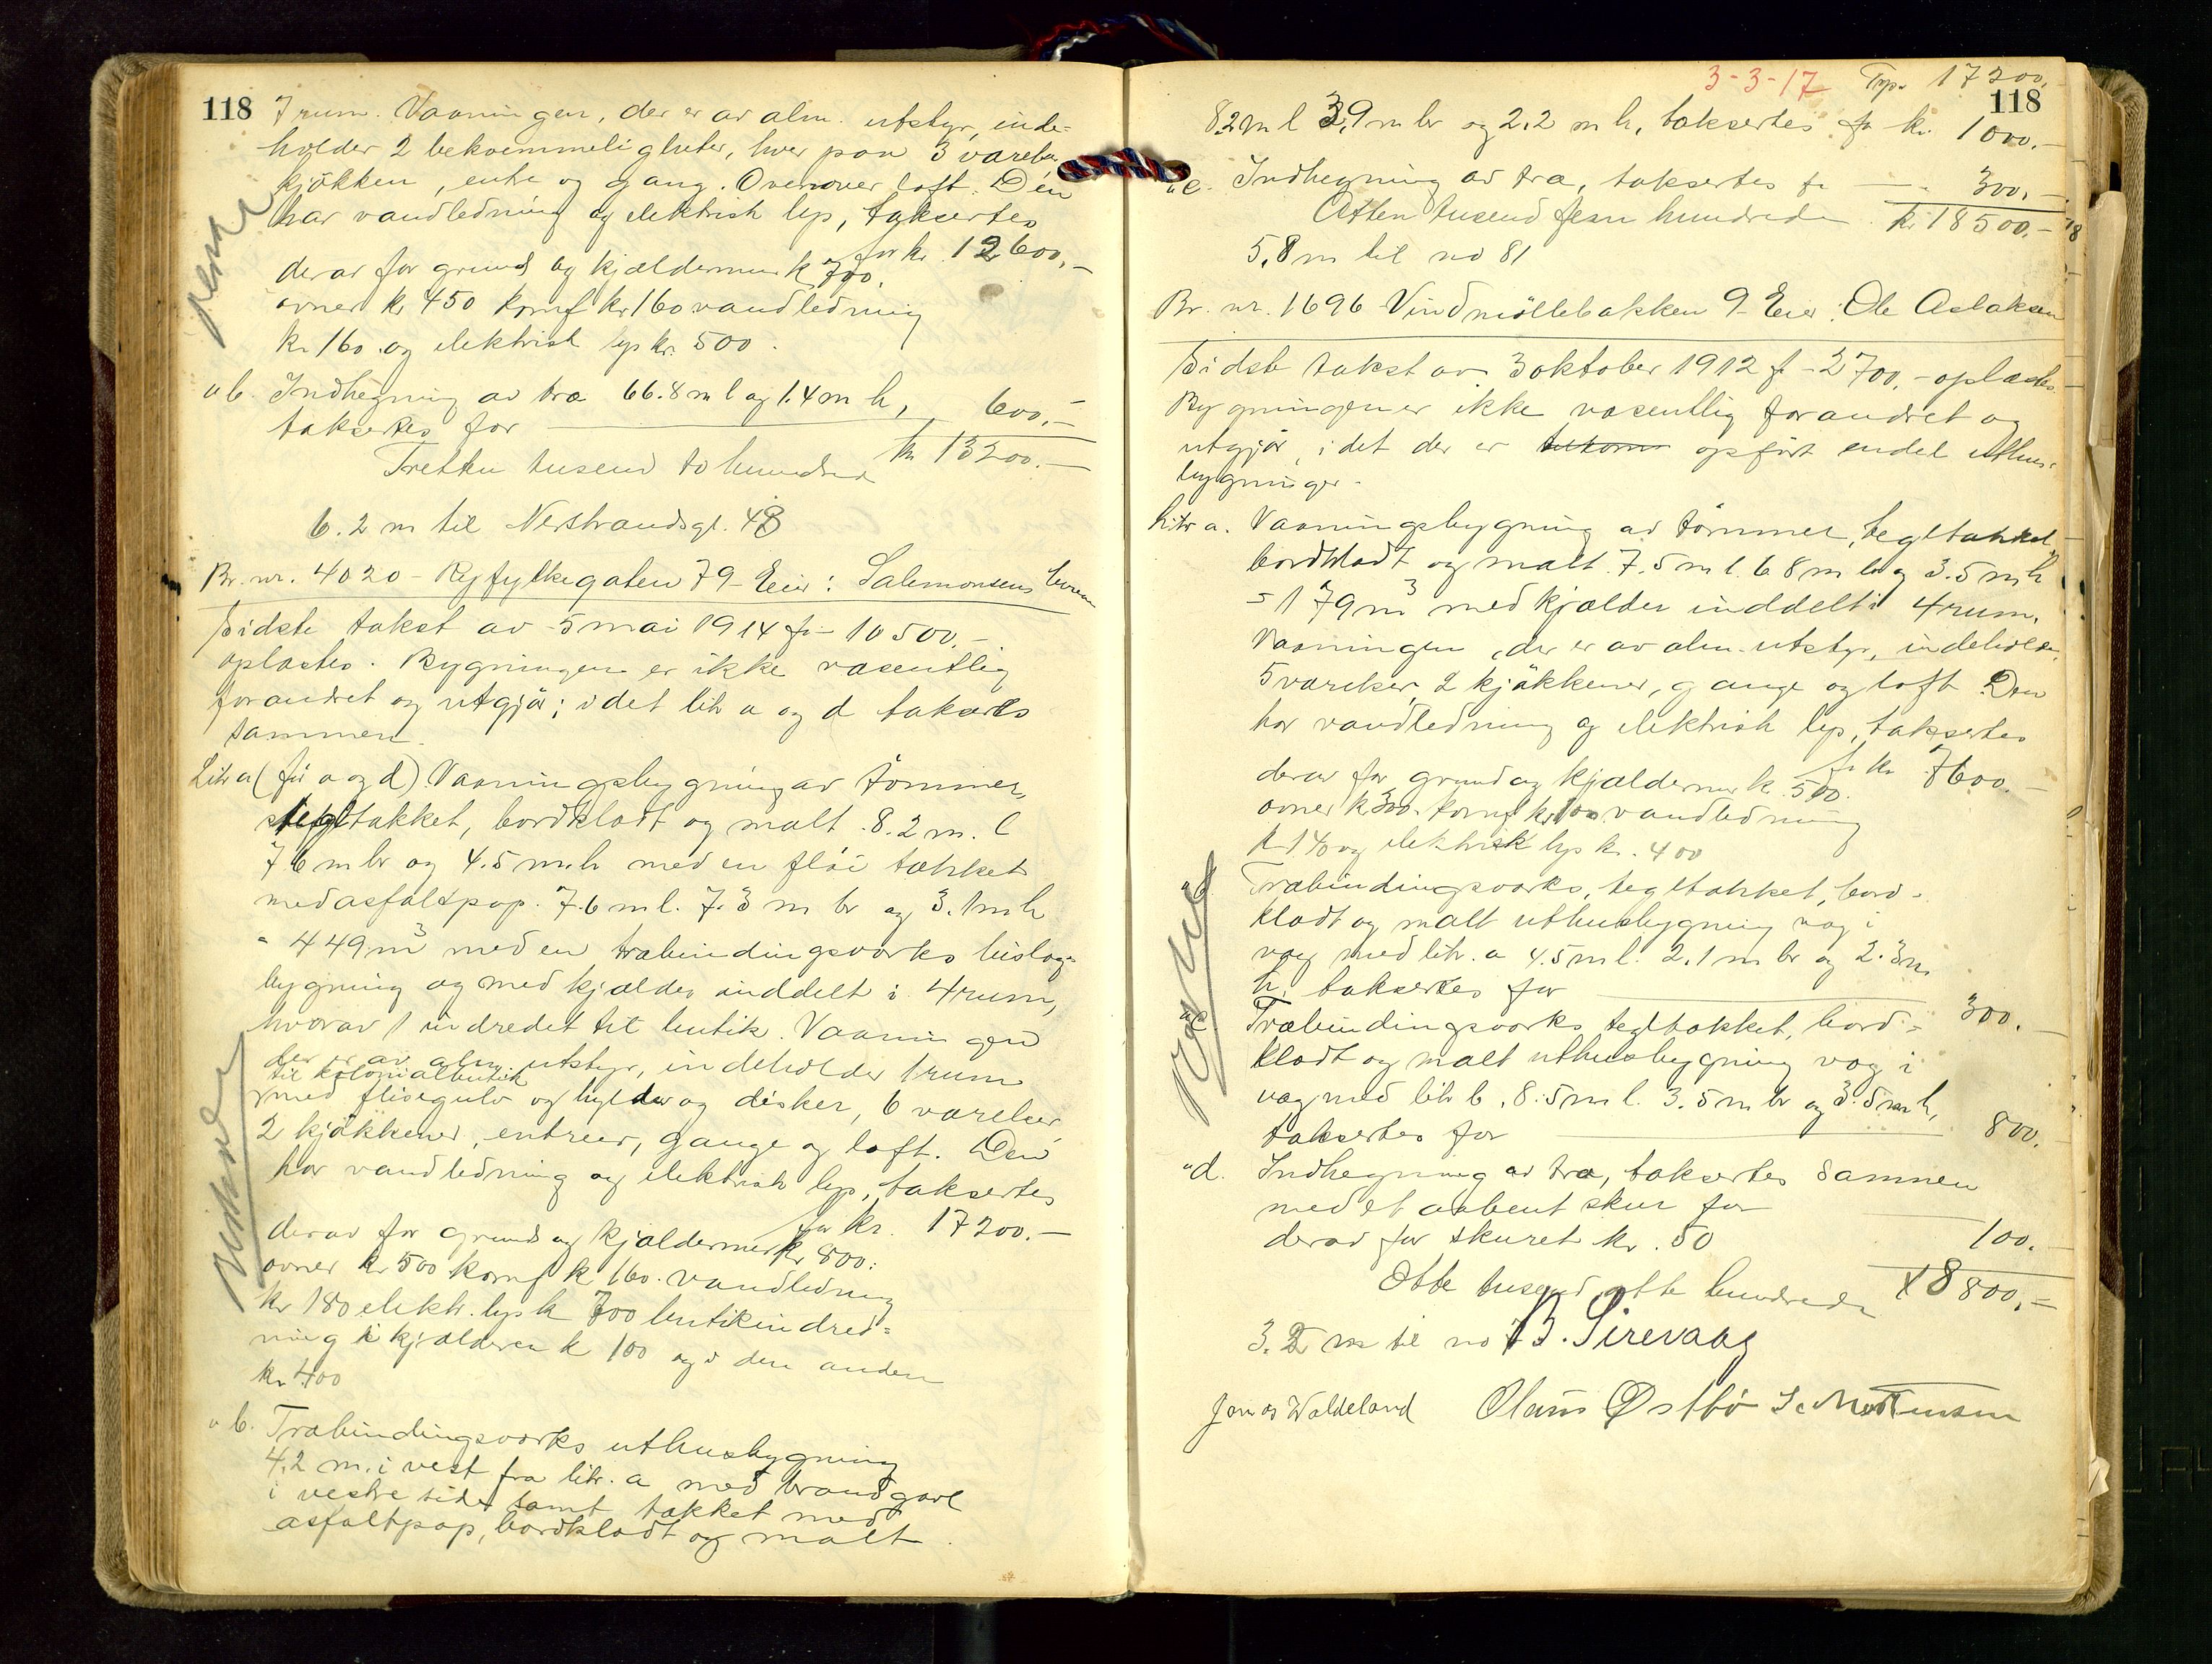 118
7 rum. Vaaningen, der er av alm. utstyr, inde-
holder 2 bekvemmeligheter, hver paa 3 værelser
kjökken, entre og gang. Ovenover loft. Den
har vandledning og elektrisk lys, taksertes
for kr. 12600.-
derav for grund og kjældermur k 700.
ovner kr 450 komf kr 160 vandledning
kr 160 og elektrisk lys kr. 500.
" b. Indhegning av træ 66.8 m l og 1.4 m h,
taksertes for 600.-
Tretten tusend to hundrede kr 13200.-
6.2 m til Nerstrandsgt. 48
Br. nr. 4020 - Ryfylkegaten 79 - Eier: Salomonsens
Sidste takst av 5 mai 1914 fr - 10500.-
oplæstes. Bygningen er ikke væsentlig
forandret og utgjör; idet litr a og d takseres
sammen.
Litr a (för a og d) Vaaningsbygning av tömmer,
tegltækket, bordklædt og malt. 8.2 m. l
7.6 m br og 4.5 m. h med en flöi tækket
med asfaltpap. 7.6 m l. 7.3 m br og 3.1 m h
= 449 m3 med en træbindingsverks bislag-
bygning og med kjælder inddelt i 4 rum,
hvorav 1 indredet til butik. Vaaningen
der er av alm utstyr, indeholder 1 rum
til kolonialbutik
med flisegulv og hylder og disker, 6 værelser,
2 kjökkener, entreer, gange og loft. Den
har vandledning og elektrisk lys, taksertes
for kr. 17200.-
derav for grund og kjældermur kr 800.
ovner kr 500 komf k 160. vandledning
kr 180 elektr. lys k 700 butikindred-
ning i kjælderen k 100 og i den anden
kr 400
" b. Træbindingsverks uthusbygning
4.2 m. i vest fra litr. a med brandgavl
i vestre side samt tækket med
asfaltpap, bordklædt og malt
3-3-17 Trp. 17200.
118
8.2 m l 3.9 m br og 2.2 m h, taksertes fr kr. 1000.-
" c. Indhegning av træ, taksertes fr 300.-
Atten tusend fem hundrede kr 18500.-
5.8 m til no 81
Br. nr. 1696 Vindmöllebakken 9 - Eier: Ole Aslaksen
Sidste takst av 3 oktober 1912 fr - 2700.- oplæstes.
Bygningen er ikke væsentlig forandret og
utgjör, idet der er opfört endel uthus-
bygninger.
Litr a. Vaaningsbygning av tömmer, tegltækket,
bordklædt og malt. 7.5 m l. 6.8 m br og 3.5 m h
= 179 m3 med kjælder inddelt i 4 rum.
Vaaningen, der er av alm. utstyr, indeholder
5 værelser, 2 kjökkener, gange og loft. Den
har vandledning og elektrisk lys, taksertes
fr kr 7600.-
derav for grund og kjældermur k 500.
ovner k 300. komf kr 100 vandledning
k 140 og elektrisk lys kr. 400
" b Træbindingsverks, tegltækket, bord-
klædt og malt uthusbygning væg i
væg med litr. a 4.5 m l. 2.1 m br og 2.3 m
h, taksertes for 300.-
" c Træbindingsverks, tegltækket, bord-
klædt og malt uthusbygning væg i
væg med litr b, 8.5 m l. 3.5 m br og 3.5 m h,
taksertes for 800.
" d. Indhegning av træ, taksertes sammen
med et aapent skur for 100.-
derav for skuret kr. 50
Otte tusend otte hundrede kr 8800.-
3.2 m til no 7
B. Sirevaag
Jonas Waldeland Olaus Østbö S. Mortensen